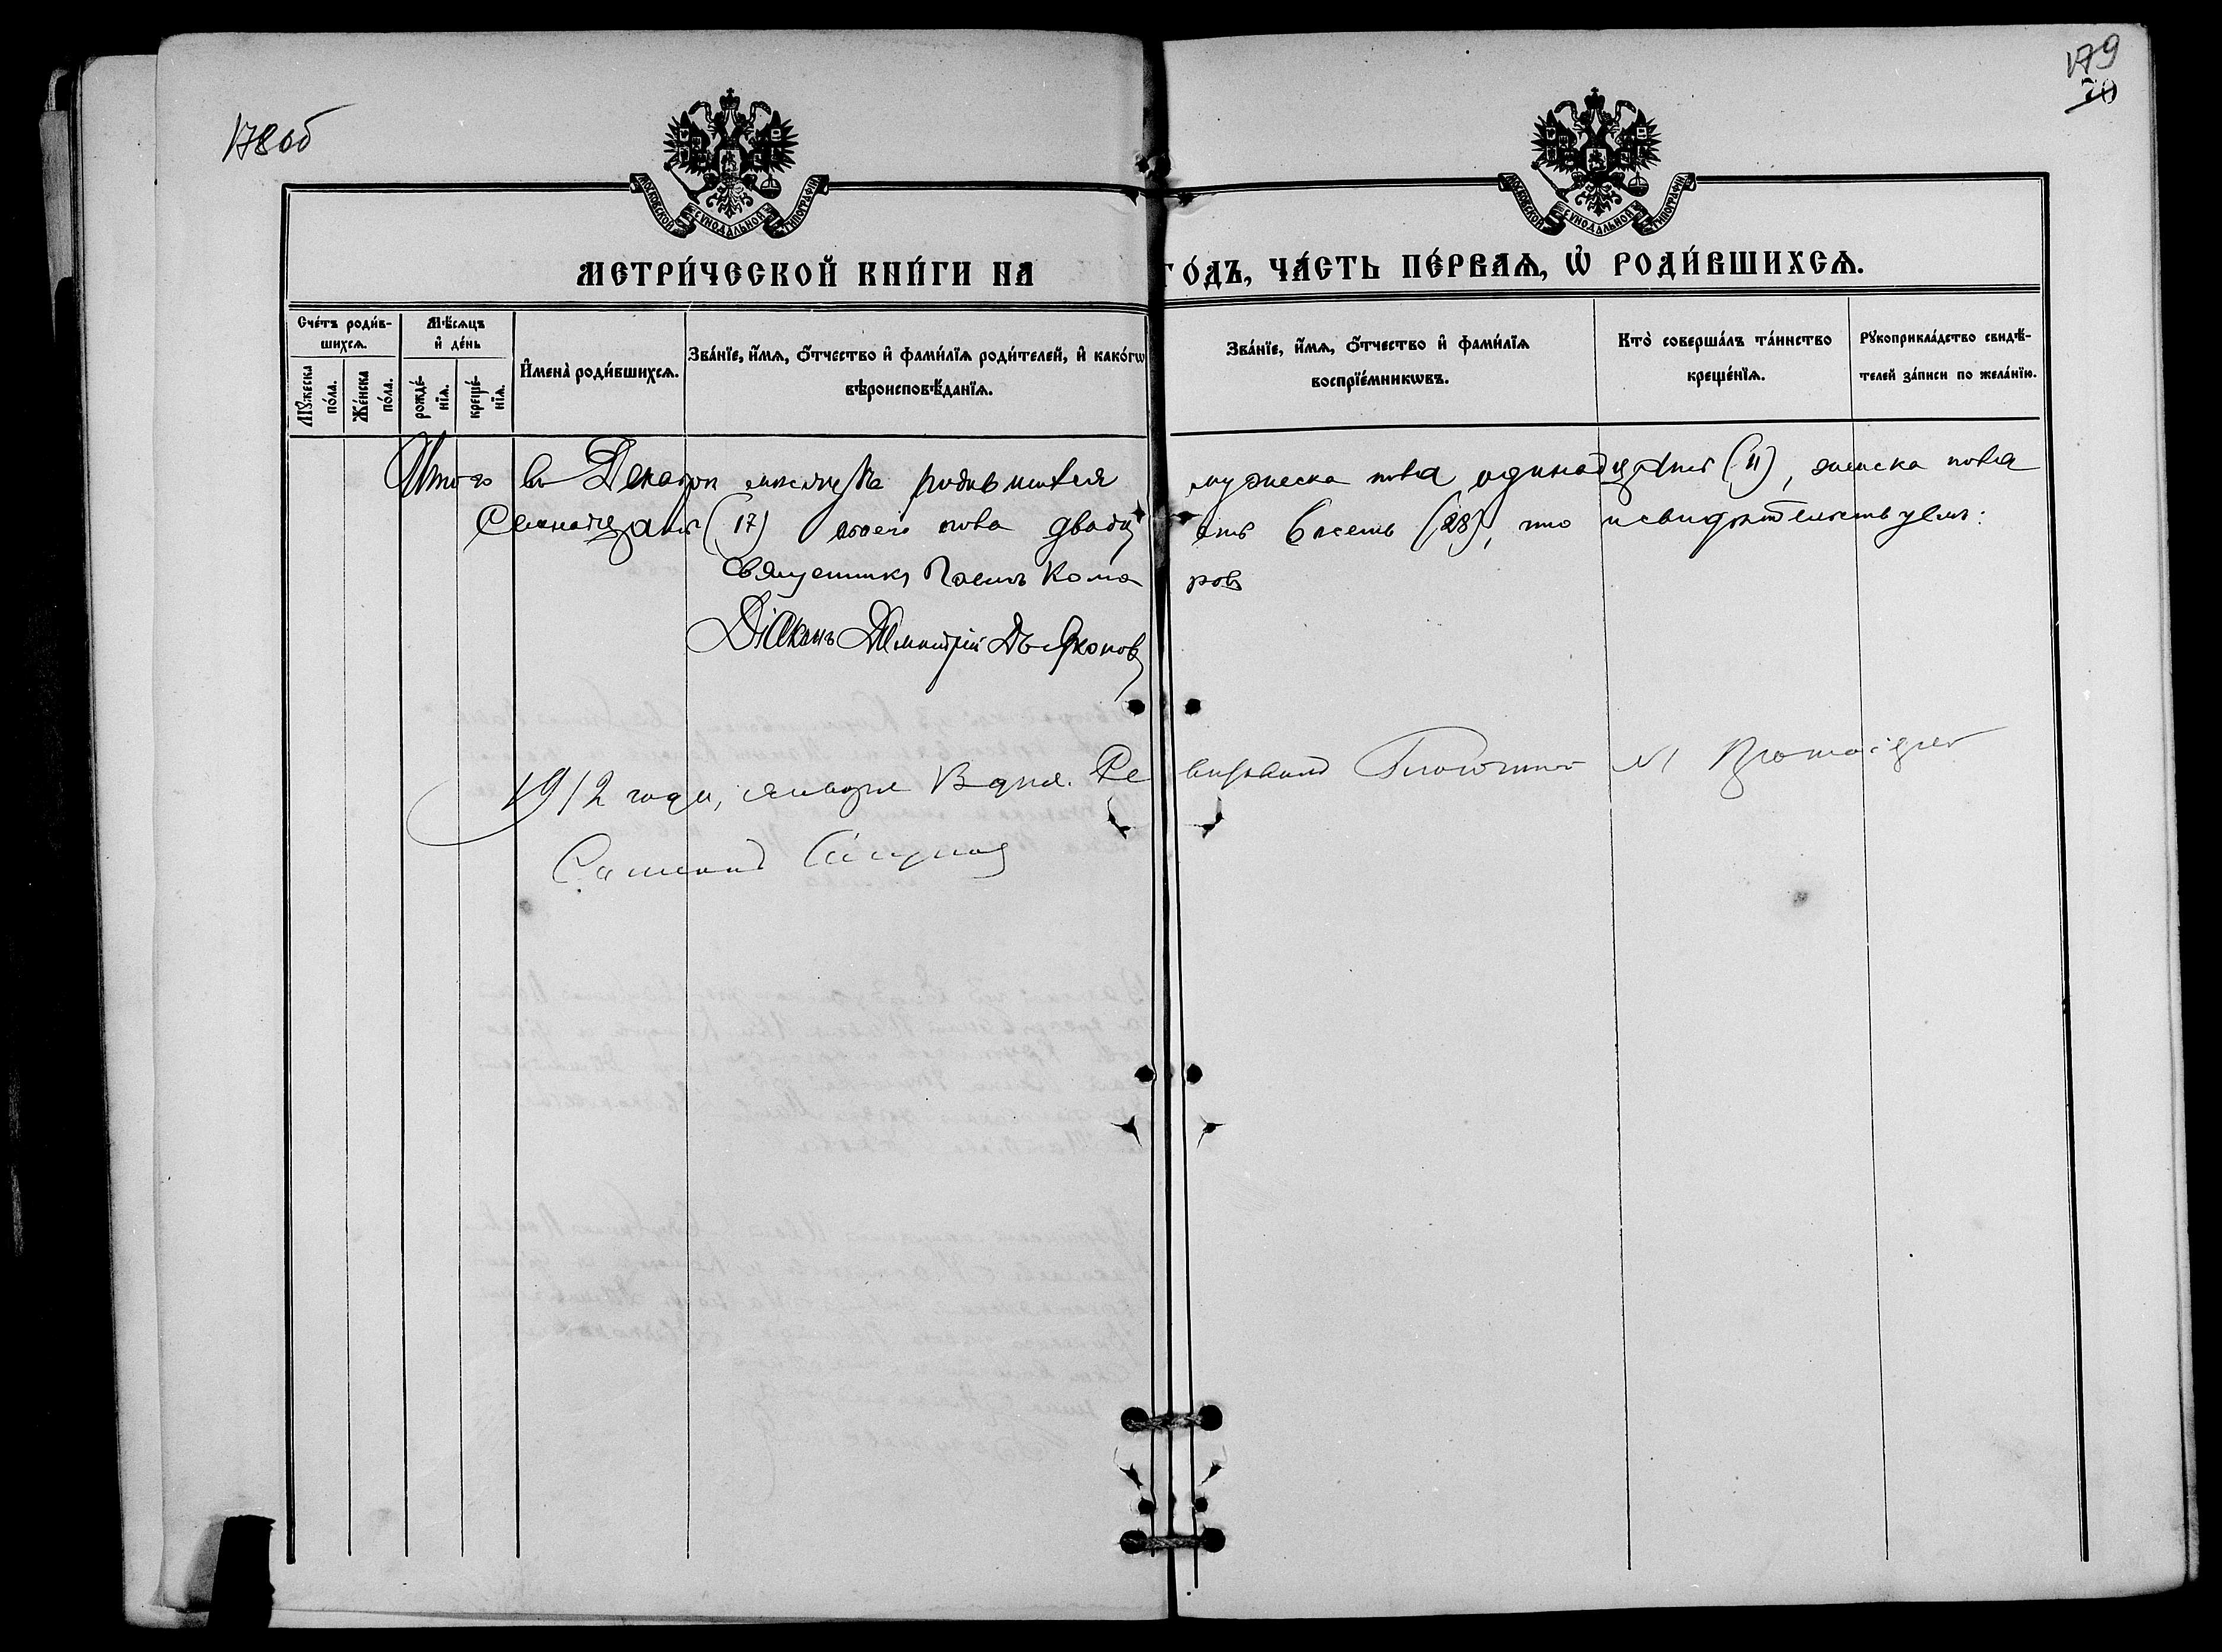 178об
179
70
МОСКОВСКОЙ СУНОДАЛЬНОЙ ТИПОГРАФІИ
МОСКОВСКОЙ СУНОДАЛЬНОЙ ТИПОГРАФІИ
МЕТРИ́ЧЕСКОЙ КНИ́ГИ НА ГО́ДЪ, ЧА́СТЬ ПЕ́РВАѦ, Ѡ҆ РОДИ́ВШИХСѦ.
Сче́тъ роди́в-
шихсѧ.
Мꙋ́жеска по́ла.
Же́нска по́ла.
Мѣ́сѧцъ
и҆ де́нь
рожде́-нїѧ.
креще́-нїѧ.
И҆мена̀ роди́вшихсѧ.
Зва́нїе, и҆́мѧ, ѻ҆́тчество и҆ фами́лїѧ роди́телей, и҆ како́гѡ
вѣроисповѣ́данїѧ.
Зва́нїе, и҆́мѧ, ѻ҆́тчество и҆ фами́лїѧ
воспрїе́мникѡвъ.
Кто̀ соверша́лъ та́инство
креще́нїѧ.
Рꙋкоприкла́дство свидѣ́-
телей за́писи по жела́нїю.
Итого въ Декабрѣ мѣсяцѣ родившихся мужеска пола одинадцать (11), женска пола
семнадцать (17) всего пола двадцать восемь (28), что и свидѣтельствуемъ:
Священникъ Павелъ Комаровъ
Діаконъ Дмитрій Дьяконовъ
1912 года, января 13 дня. Ревизовалъ Благочинный